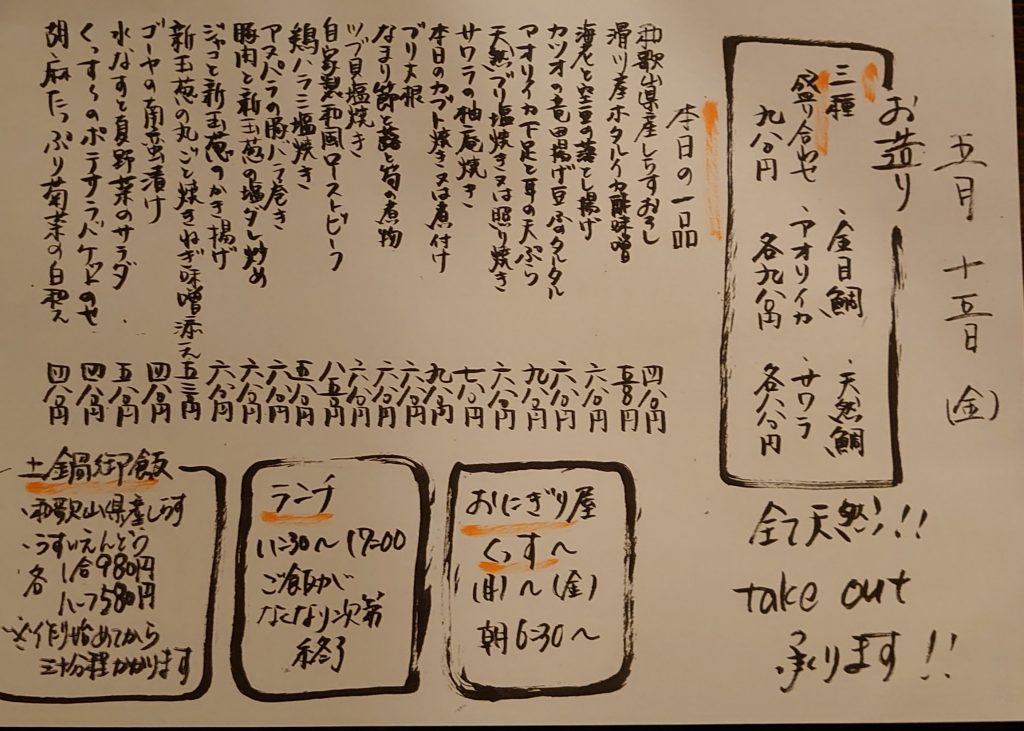 五月十五日(金)
お造り
三種盛り合わせ
九八〇円
・金目鯛
・アオリイカ
各九八〇円
・天然鯛
・サワラ
各八八〇円
全て天然!!
take out
承ります!!
本日の一品
和歌山県産しらすおろし 四八〇円
滑川産ホタルイカ酢味噌 五五〇円
海老と空豆の落とし揚げ 六八〇円
カツオの竜田揚げ豆ふのタルタル 六八〇円
アオリイカ下足と耳の天ぷら 九八〇円
天然ブリ塩焼き又は照り焼き 六八〇円
サワラの柚庵焼き 七八〇円
本日のカブト焼き又は煮付け 九八〇円
ブリ大根 六八〇円
なまり節と蕗と筍の煮物 六八〇円
ツブ貝塩焼き 六八〇円
自家製和風ローストビーフ 八五〇円
鶏ハラミ塩焼き 五八〇円
アスパラの豚バラ巻き 六八〇円
豚肉と新玉葱の塩ダレ炒め 六八〇円
ジャコと新玉葱のかき揚げ 六八〇円
新玉葱の丸ごと焼きねぎ味噌添え 五三〇円
ゴーヤの南蛮漬け 四八〇円
水なすと夏野菜のサラダ 五八〇円
くっす〜のポテサラバケットのせ 四八〇円
胡麻たっぷり菊菜の白和え 四八〇円
おにぎり屋
くっす〜
(月)〜(金)
朝6:30〜
ランチ
11:30〜17:00
ご飯が
なくなり次第
終了
土鍋御飯
・和歌山県産しらす
・うすいえんどう
各 1合980円
ハーフ580円
※作り始めてから
三十分程かかります